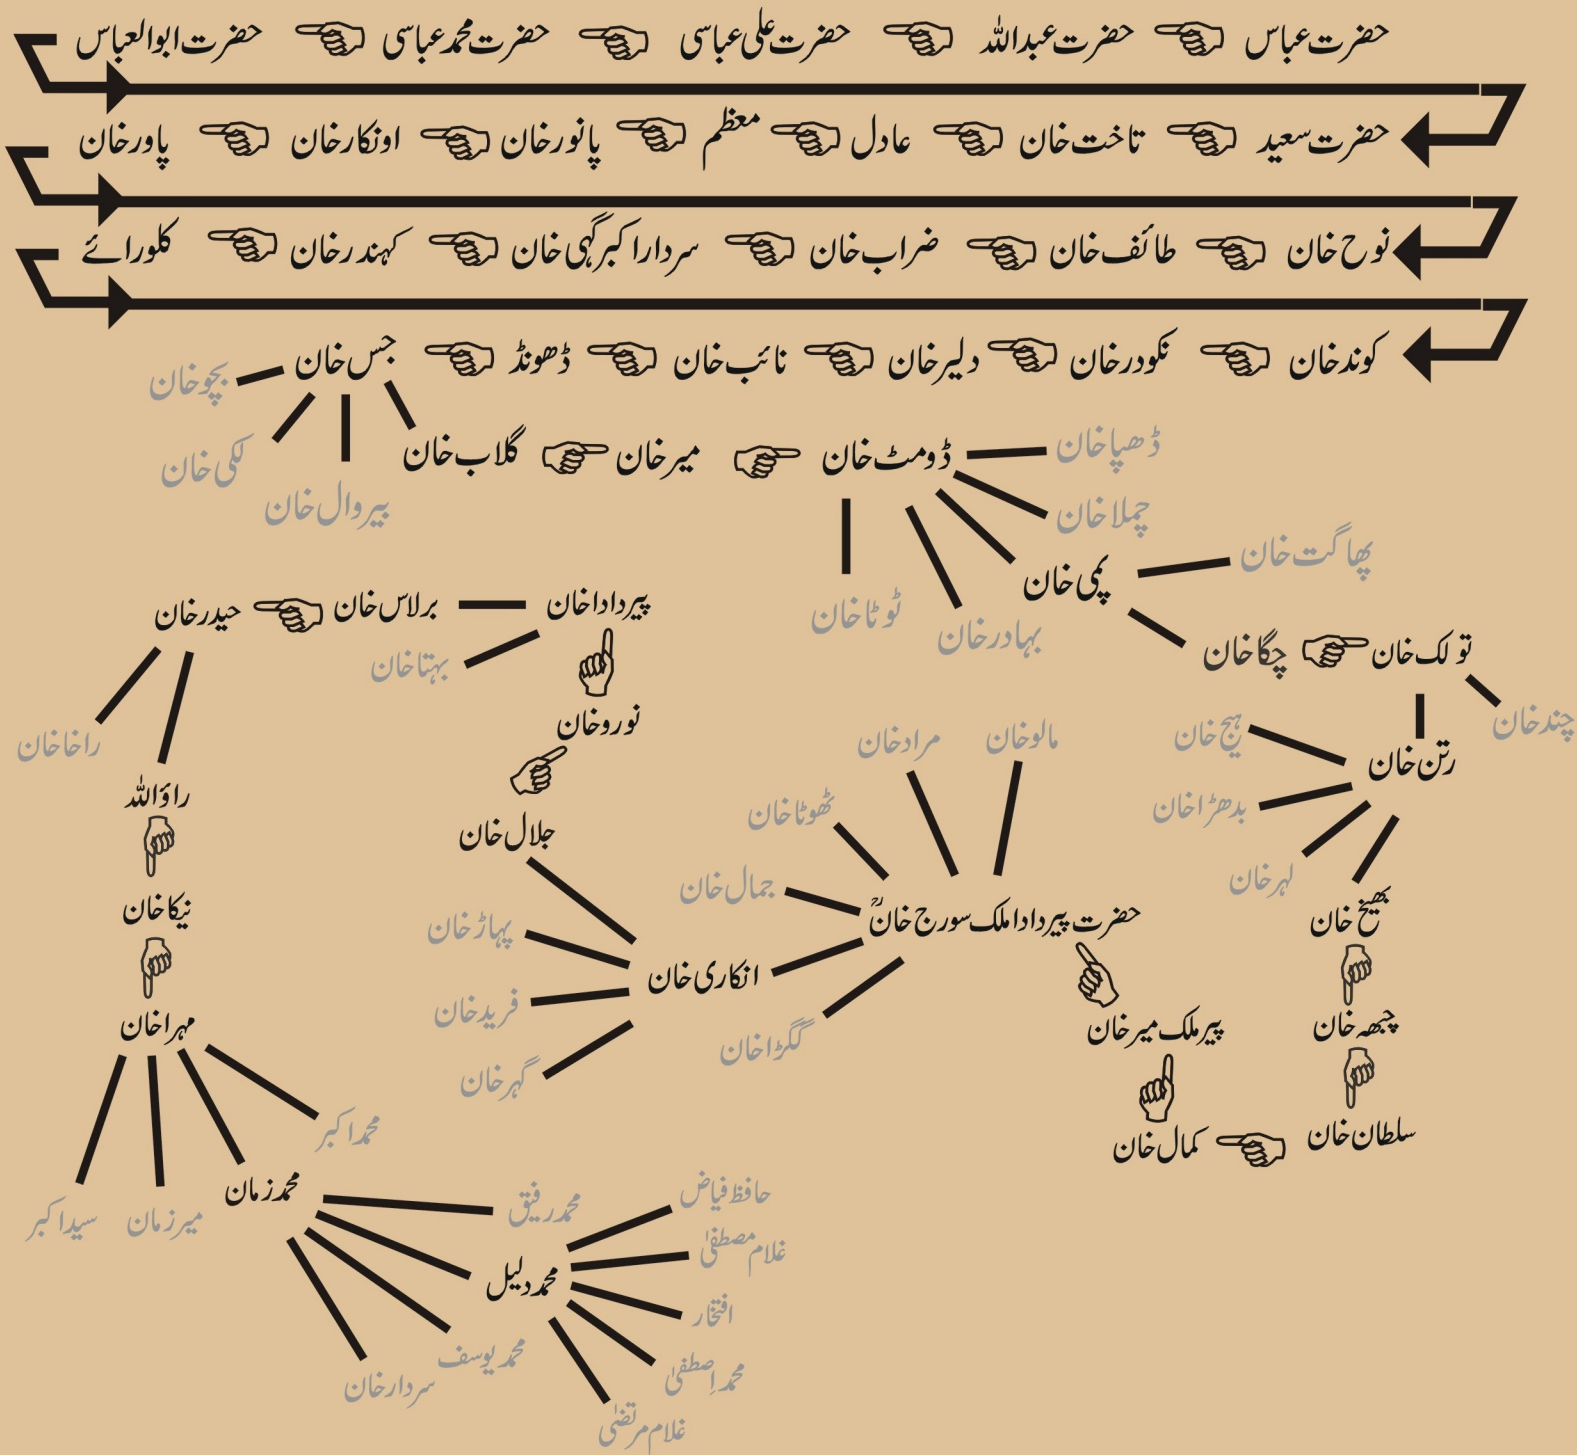 حضرت عباس حضرت عبداللہ حضرت علی عباسی حضرت محمد عباسی حضرت ابوالعباس
حضرت سعید تاخت خان عادل معظم پانور خان اونکار خان پاور خان
نوح خان طائف خان ضراب خان سردار اکبر گہی خان کہندر خان کلورائے
کوند خان نکودر خان دلیر خان نائب خان ڈھونڈ جس خان بجو خان
لکی خان
بیروال خان
گلاب خان میر خان ڈومٹ خان ڈھپا خان
چملا خان
پمی خان پھاگت خان
بہادر خان
ٹوٹا خان
چگا خان تولک خان
چند خان
رتن خان
بیج خان
بدھڑا خان
لہر خان
بھیخ خان
جبھہ خان
سلطان خان
کمال خان
پیر ملک میر خان
حضرت پیر دادا ملک سورج خانؒ
مالو خان
مراد خان
ٹھوٹا خان
جمال خان
گگڑا خان
انکاری خان
پہاڑ خان
فرید خان
گہر خان
جلال خان
نورو خان
پیر دادا خان
بہتا خان
برلاس خان
حیدر خان
راخا خان
راؤ اللہ
نیکا خان
مہرا خان
محمد اکبر
محمد زمان
میر زمان
سید اکبر
محمد رفیق
محمد دلیل
محمد یوسف
سردار خان
حافظ فیاض
غلام مصطفیٰ
افتخار
محمد اِصطفیٰ
غلام مرتضیٰ